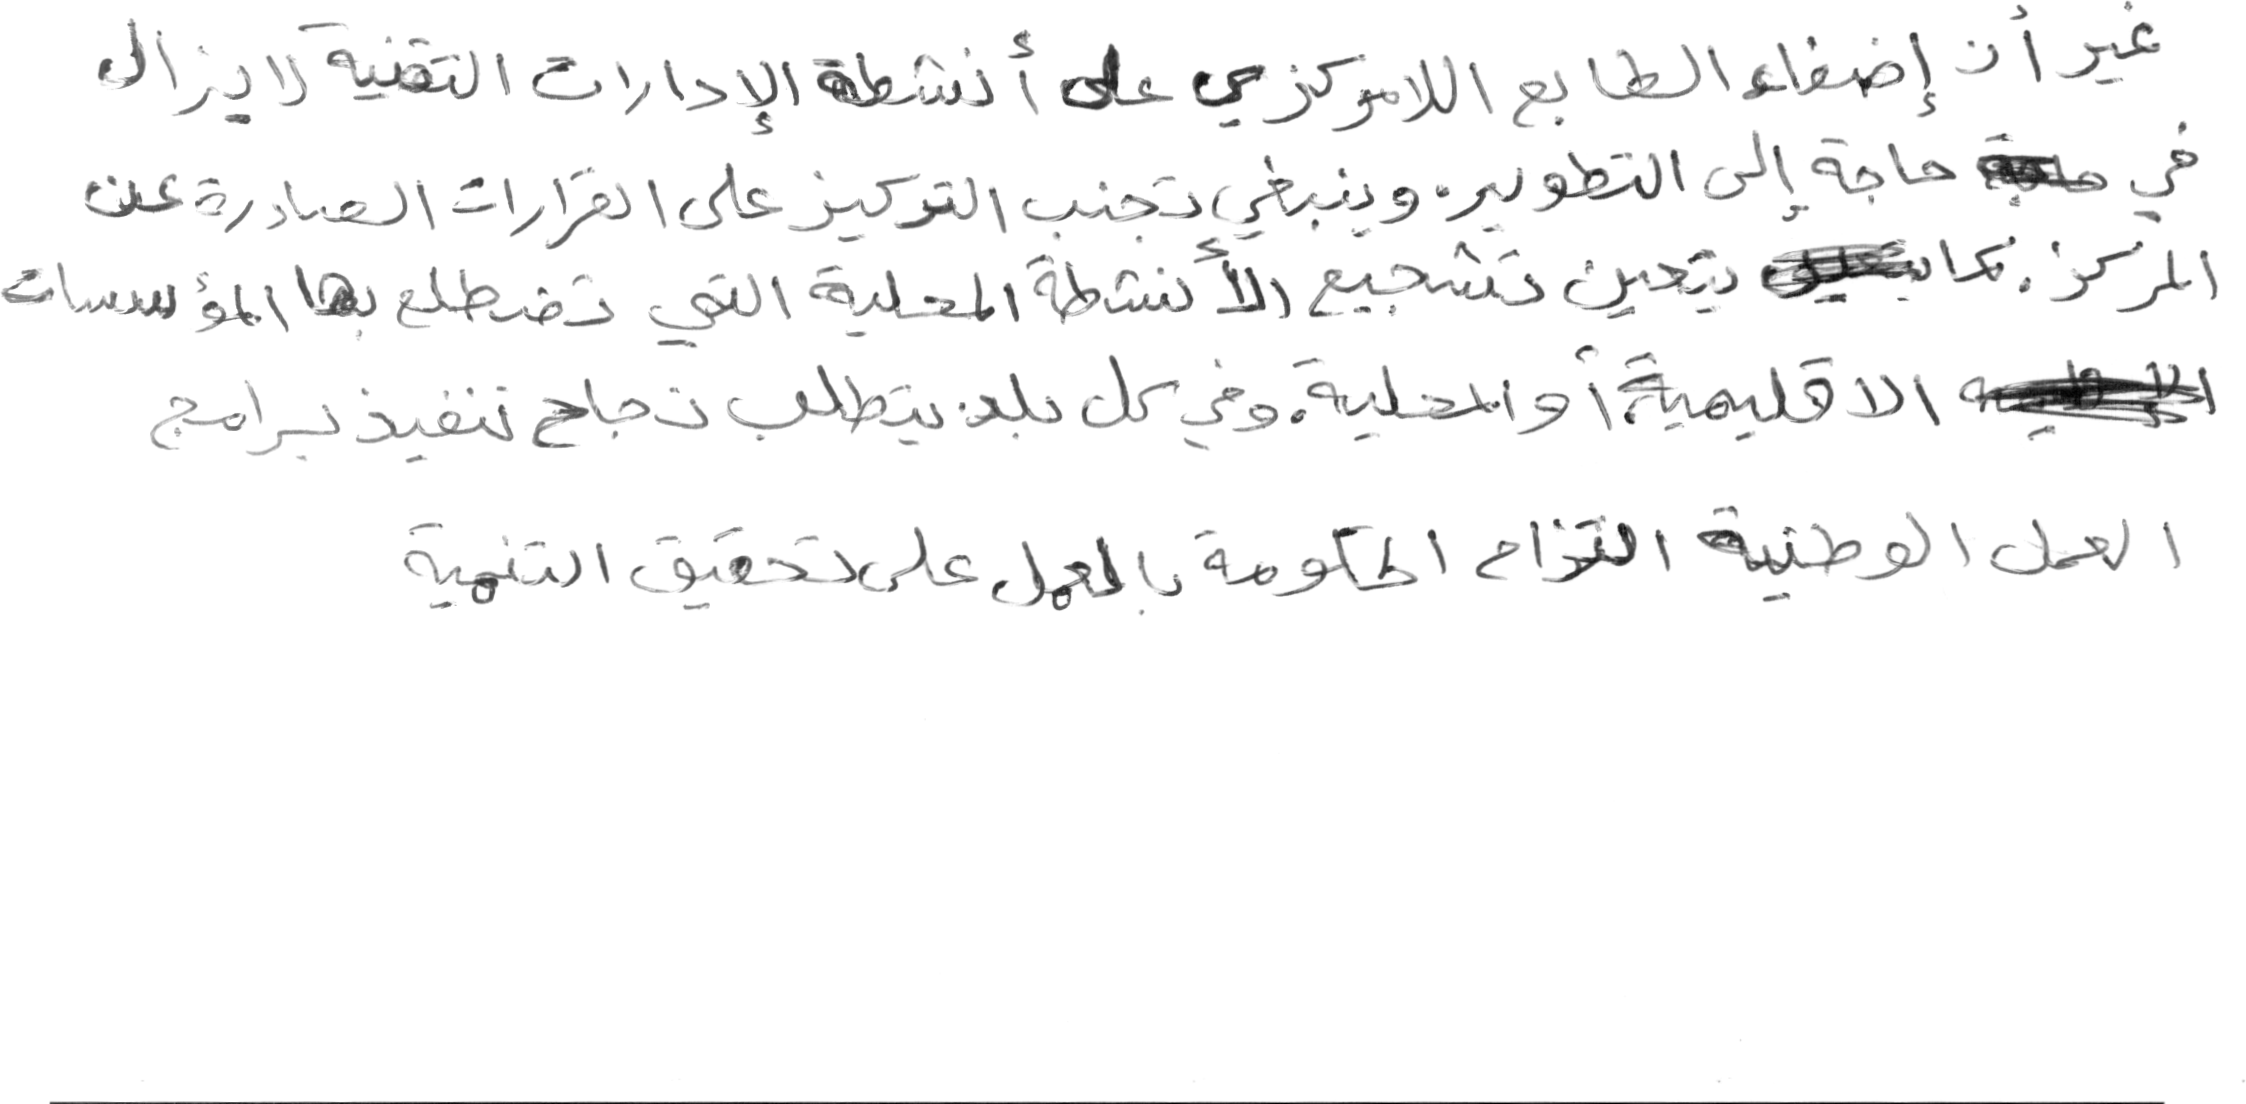 غير أن إضفاء الطابع اللامركزي على أنشطة الإدارات التقنية لا يزال
في حاجة إلى التطوير. وينبغي تجنب التركيز على القرارات الصادرة عن
المركز. كما يتعين تشجيع الأنشطة المحلية التي تضطلع بها المؤسسات
الاقليمية أو المحلية. وفي كل بلد يتطلب نجاح تنفيذ برامج
العمل الوطنية التزام الحكومة بالعمل على تحقيق التنمية